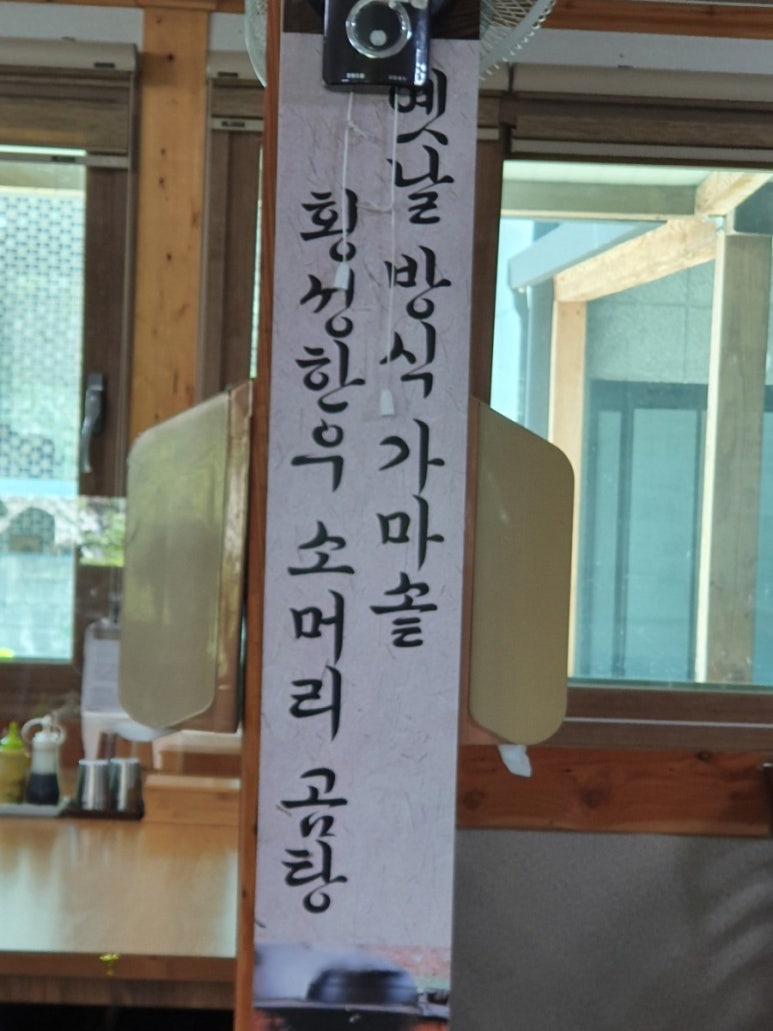 옛날 방식 가마솥
횡성한우 소머리 곰탕